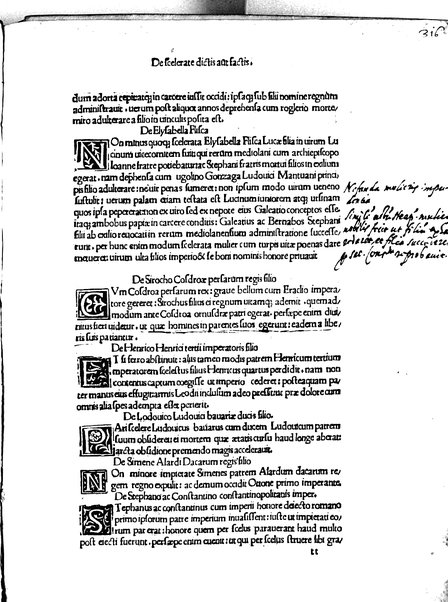 316
De scelerate dictis aut factis.
dum adorta eripuitq; in carcere iussit occidi: ipsaq; sub filii nomine regnum
administrauit. uerum post aliquot annos deprehensa cum roglerio morte,
miro adulterare a filio in uinculis posita est.
De Elysabella Fisca
NOn minus quoq; scelerata Elysabella Fisca Lucæ filia in uirum Lu
cinum uicecomitem fuit qui rerum mediolani cum archiepiscopo
Ioanne fratre potiebatur: ac Stephani fratris mortui filios in exilium
egerat. nam dephensa cum ugolino Gonzaga Ludouici Mantuani princi,
pis filio adulterare: ne iuit penas sumeret: non ipsum modo uirum ueneno
sustulit: uerum palam etiam testata est Lucinum iuniorem atq; ursinam
quos ipsa pepererat non ex uiro sed ex nepote eius Galeatio conceptos esse.
itaq; ambobus papir in carcere condius: Galeatius ac Bernabos Stephani
filii ab exilio reuocati in rerum mediolanensium administratione successe,
runt. per hunc enim modum scelerata mulier cum turpis uitæ poenas dare
metueret: uirum ultra filios imperio & se boni nominis honore priuauit
Nefanda mulieris impu-
De Sirocho Cosdroæ persarum regis filio
CVm Cosdroa persarum rex: graue bellum cum Eradio impera
tore gereret: Sirochus filius ei regnum uitamq; ademit. quemad,
modum ante Cosdroa ormisdæ patri egerat. persæpe enim diui
nitus fieri uidetur. ut quæ homines in parentes suos egerunt: eadem a libe,
ris suis patiantur.
De Henrico Henrici tertii imperatoris filio
ET si ferro abstinuit: alius tameo modis patrem Henricum tertium
imperatorem scelestus filius Henricus quartus perdidit. nam non
contentus captum coegisse ut imperio cederet: posteaquam pa,
ter manus eius effugit armis Leodii inclusum adeo pressit ut præ dolore cum
omnis alia spes adempta esset perierit.
De Lodouico Ludouici bauariæ ducis filio.
PAri scelere Ludouicus bauarus cum ducem Ludouicum patrem
suum obsideret: ei mortem quæ ætatis cursu haud longe aberat:
iarcta obsidione premendo magis accelerauit.
De Simene Alardi Dacarum regis filio
NOn minore impietate Simenes patrem Alardum dacarum re,
gem regno expulit: ac demum occidit Ozone primo imperante.
De Stephano ac Constantino constantinopolitanis imper.
STephanus ac constantinus cum imperii honore deiecto romano
primo ipsorum patre imperium inuasissent: iuste ut impietati eo,
rum par erat: honore quem per scelus parauerant haud multo
post eiecti fuerunt. persæpe enim euenit: ut qui per scelus struere sibi gra,
LL